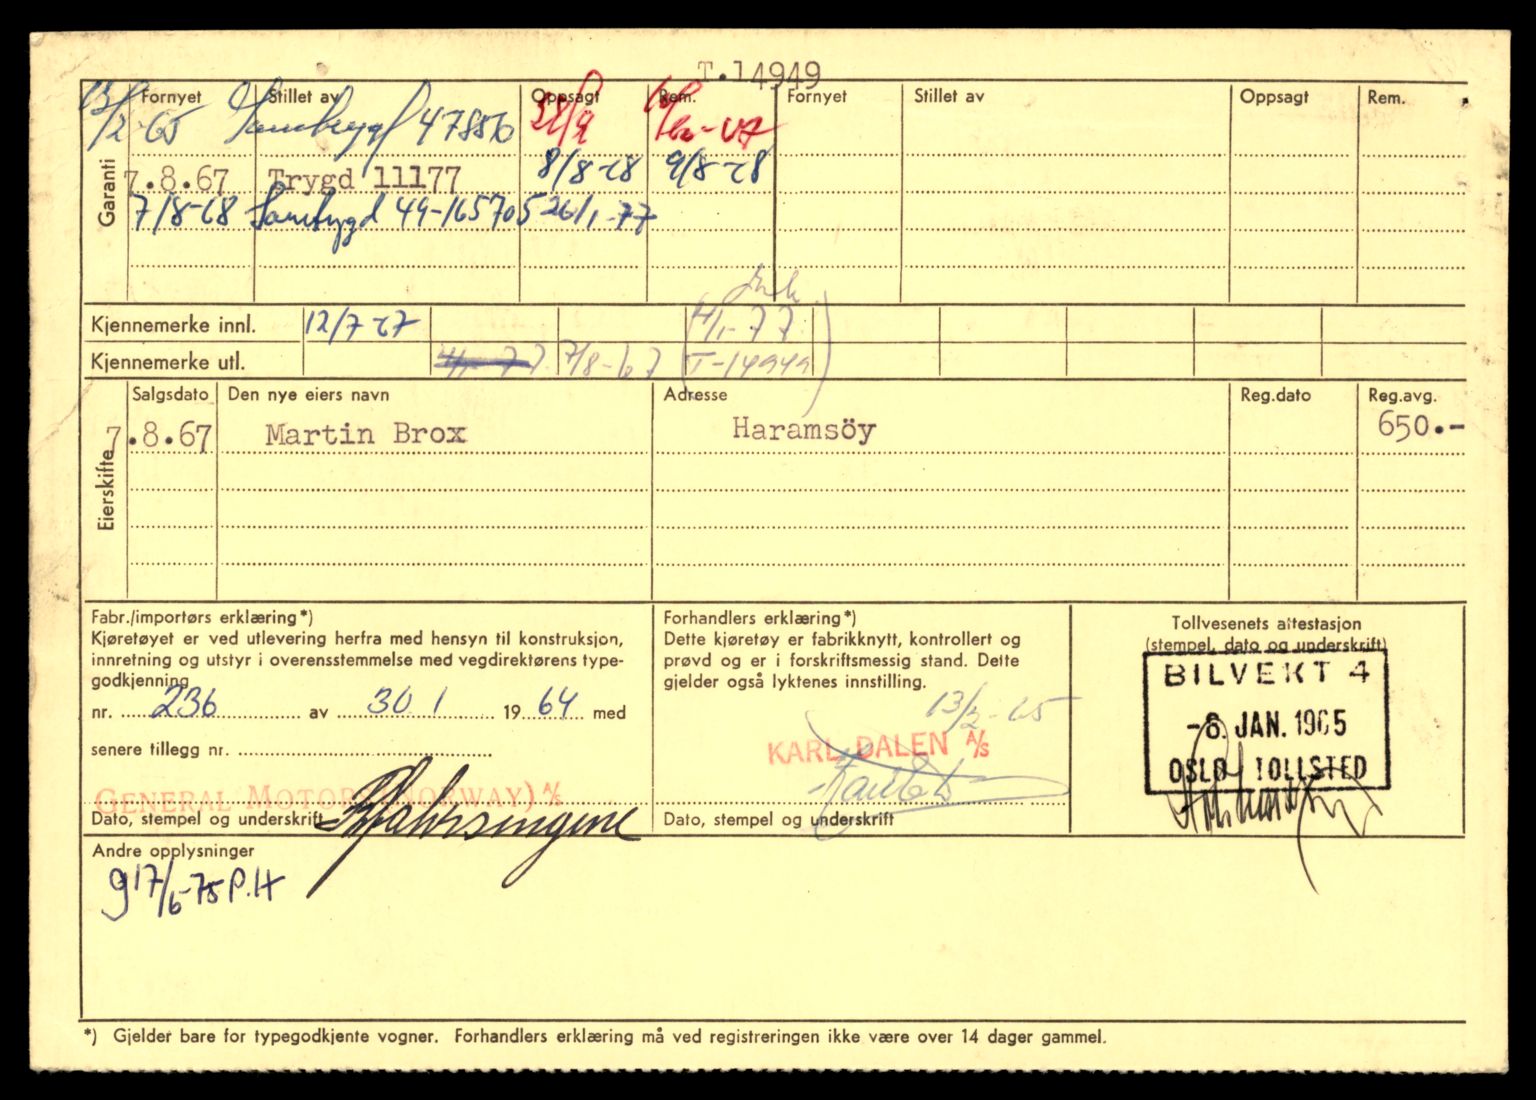 T.14949
Fornyet Stillet av Oppsagt Rem. Fornyet Stillet av Oppsagt Rem.
13/2 65 Samtrygd
Garanti
7.8.67 Trygd 11177 8/8-68 9/8-68
7/8-68 Samtrygd 49-165705 26/1-77
Kjennemerke innl. 12/7-67 4/1-77
Kjennemerke utl. 4/1-77 7/8-67 (T-14949)
Eierskifte
Salgsdato Den nye eiers navn Adresse Reg.dato Reg.avg.
7.8.67 Martin Brox Haramsöy 650.-
Fabr./importørs erklæring*)
Kjøretøyet er ved utlevering herfra med hensyn til konstruksjon,
innretning og utstyr i overensstemmelse med vegdirektørens type-
godkjenning
nr. 236 av 30 1 19 64 med
senere tillegg nr.
GENERAL MOTORS (NORWAY) A/S
Dato, stempel og underskrift
Forhandlers erklæring*)
Dette kjøretøy er fabrikknytt, kontrollert og
prøvd og er i forskriftsmessig stand. Dette
gjelder også lyktenes innstilling.
13/2-65
KARL DALEN A/S
Dato, stempel og underskrift
Tollvesenets attestasjon
(stempel, dato og underskrift)
BILVEKT 4
-8. JAN. 1965
OSLO TOLLSTED
Andre opplysninger
g 17/6-75 P.H
*) Gjelder bare for typegodkjente vogner. Forhandlers erklæring må ved registreringen ikke være over 14 dager gammel.